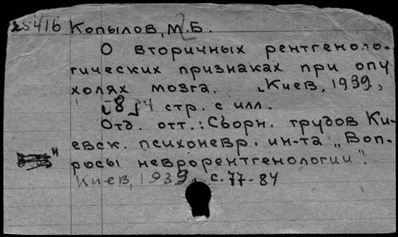 25416 Копылов, М.Б.
О вторичных рентгеноло-
гических признаках при опу
холях мозга. Киев, 1939,
[8] стр. с илл.
Отд. отт.: Сборн. трудов Ки-
евск. психоневр. ин-та „Воп-
росы неврорентгенологии".
Киев, 1939, с. 77-84